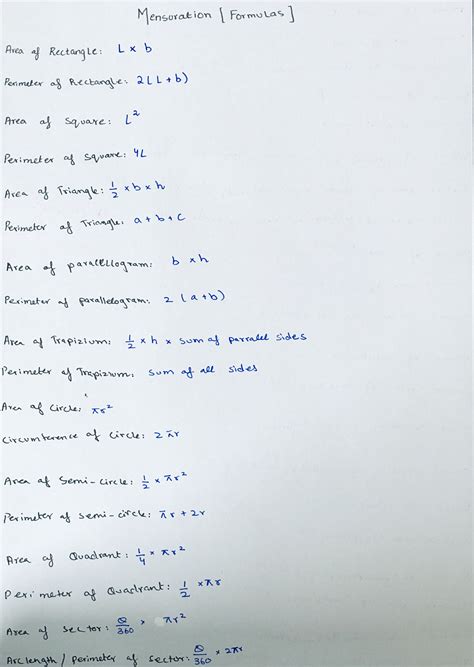 Mensoration [Formulas]
Area of Rectangle: L x b
Perimeter of Rectangle: 2(L+b)
Area of square: L²
Perimeter of square: 4L
Area of Triangle: 1/2 x b x h
Perimeter of Triangle: a+b+c
Area of parallelogram: b x h
Perimeter of parallelogram: 2(a+b)
Area of Trapizium: 1/2 x h x sum of parralel sides
Perimeter of Trapizium: sum of all sides
Area of circle: πr²
Circumference of circle: 2πr
Area of Semi-circle: 1/2 x πr²
Perimeter of semi-circle: πr + 2r
Area of Quadrant: 1/4 x πr²
Perimeter of Quadrant: 1/2 x πr
Area of sector: θ/360 x πr²
Arc length / perimeter of sector: θ/360 x 2πr